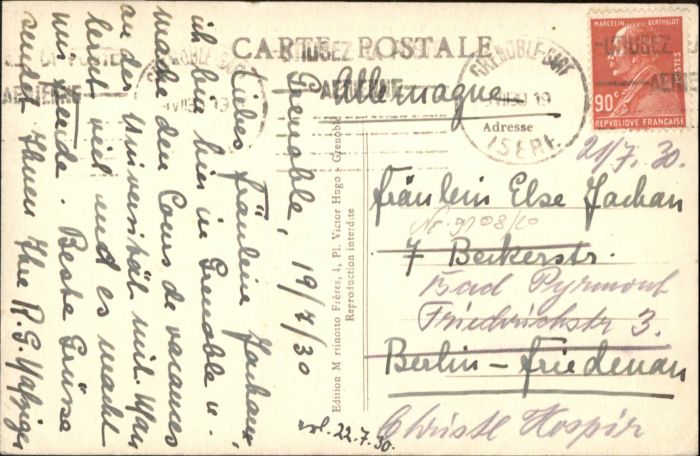 CARTE POSTALE
Allemagne
Adresse
Grenoble, 19/7/30
Liebes Fräulein Jachan,
ich bin hier in Grenoble u.
mache den Cours de vacances
an der Universität mit. Man
lernt viel und es macht
mir Freude. Beste Grüsse
sendet Ihnen Ihre R. G.
erl. 22.7.30.
Edition Martinotto Frères, 4, Pl. Victor Hugo - Grenoble
Reproduction interdite
MARCELIN BERTHELOT
POSTES
90c
REPVBLIQVE FRANÇAISE
GRENOBLE-GARE
ISERE
UTILISEZ
AERIENNE
21/7. 30.
Fräulein Else Jachan
Nr. 9108/20
7 Beckerstr.
Bad Pyrmont
Friedrichstr 3.
Berlin-Friedenau
Christl. Hospiz